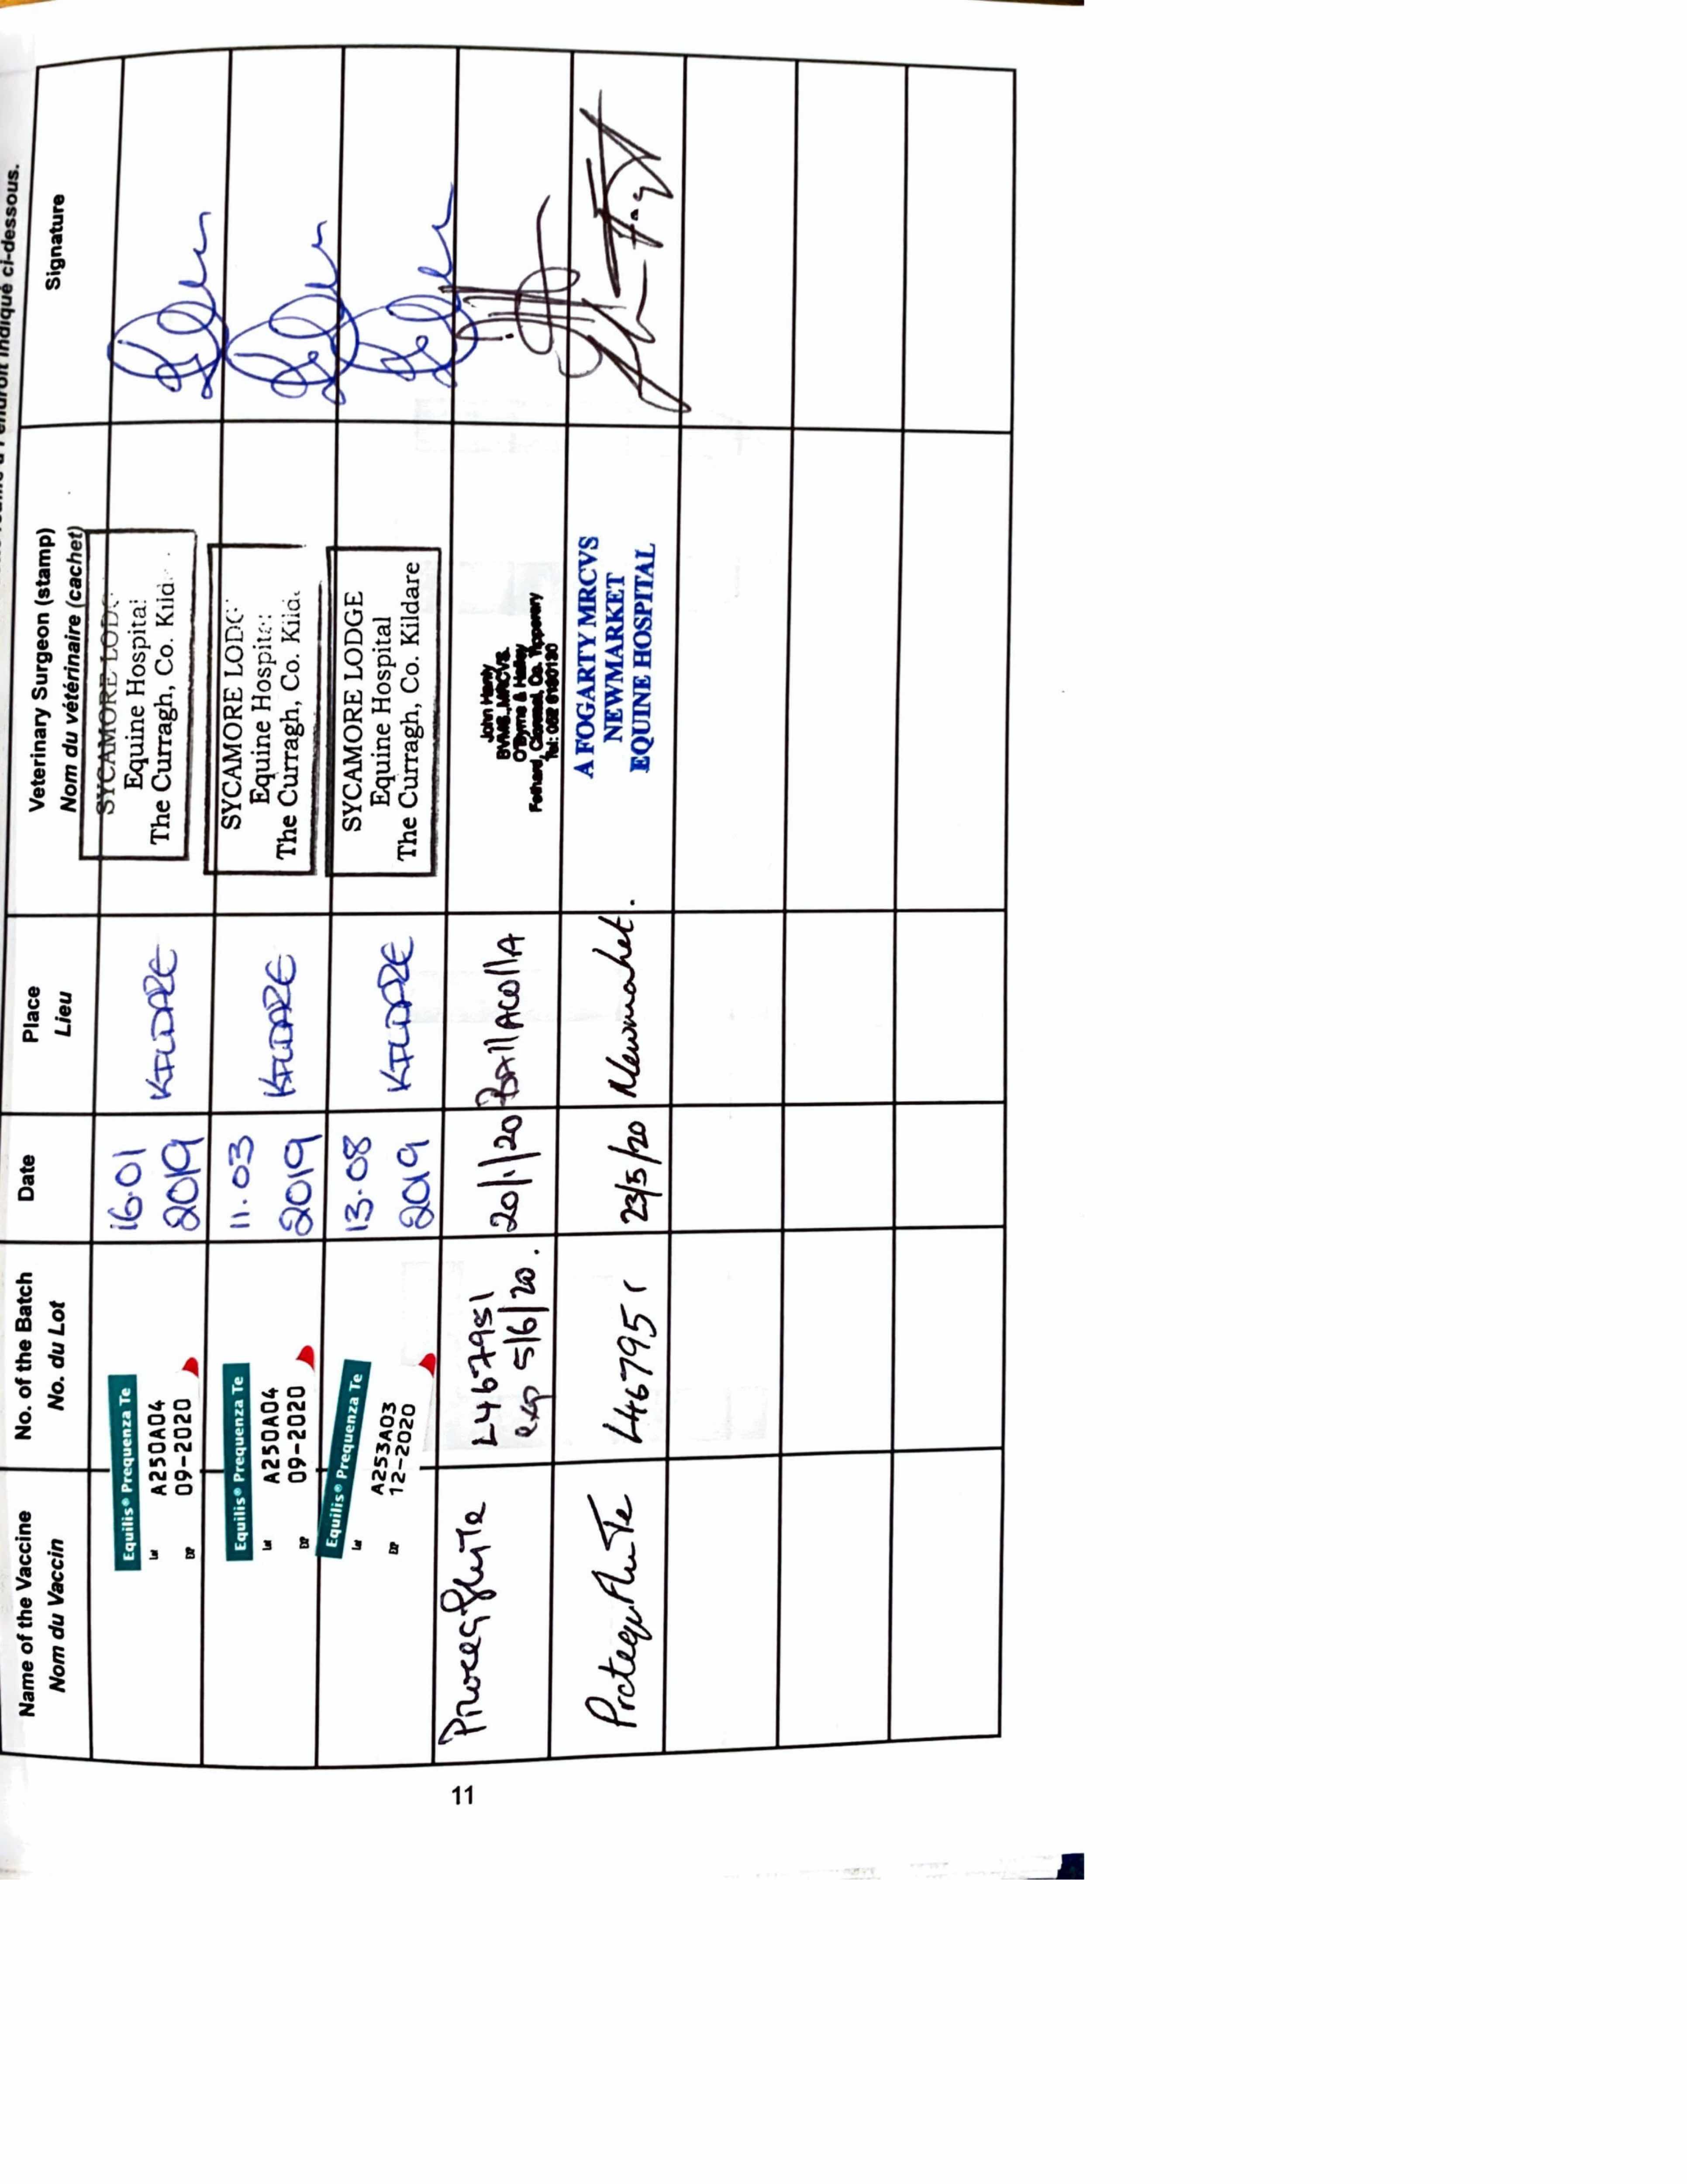 endroit indiqué ci-dessous.
Name of the Vaccine
Nom du Vaccin
No. of the Batch
No. du Lot
Date
Place
Lieu
Veterinary Surgeon (stamp)
Nom du vétérinaire (cachet)
Signature
Equilis® Prequenza Te
Lot A250A04
EXP 09-2020
16.01
2019
KILDARE
SYCAMORE LODG
Equine Hospital
The Curragh, Co. Kild
Equilis® Prequenza Te
Lot A250A04
EXP 09-2020
11.03
2019
KILDARE
SYCAMORE LODG
Equine Hospital
The Curragh, Co. Kild
Equilis® Prequenza Te
Lot A253A03
EXP 12-2020
13.08
2019
KILDARE
SYCAMORE LODGE
Equine Hospital
The Curragh, Co. Kildare
L467951
exp 5/6/20.
20/1/20
BAllACollA
John Hanly
BVMS, MRCVS.
O'Byrne & Halley
Fethard, Clonmel, Co. Tipperary
Tel: 052 6130130
ProteqFlu Te
L467951
23/5/20
Newmarket.
A FOGARTY MRCVS
NEWMARKET
EQUINE HOSPITAL
11